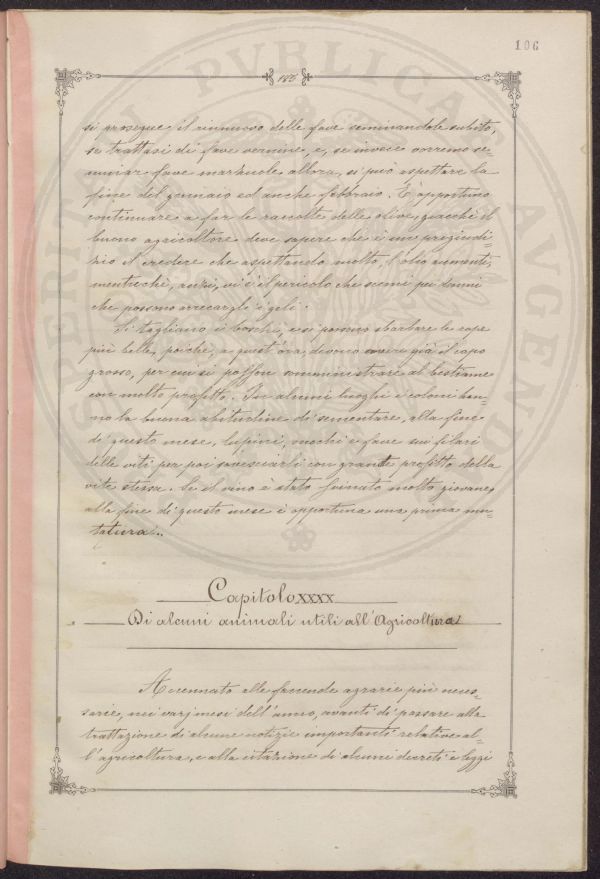 106
185
si, prosegue il rinnuovo delle fave seminandole subito,
se trattasi di fave vernine, e, se invece avremo se=
minar fave marzuole allora, si può aspettare la
fine del gennaio ed anche febbraio. È opportuno
continuare a far le raccolte delle olive, giacchè il
buono agricoltore deve sapere che è un pregiudi=
zio il credere che aspettando molto, l'olio aumenti,
mentrechè, anzi, vi è il pericolo che scemi pei danni
che possono arrecargli i geli.
Si tagliano i boschi, e si possono sbarbare le rape
più belle, poichè, a quest'ora, devono avere già il capo
grosso, per cui si possono somministrare al bestiame
con molto profitto. In alcuni luoghi i coloni han=
no la buona abitudine di sementare, alla fine
di questo mese, lupini, mochi e fave sui filari
delle viti per poi sovesciarli con grande profitto della
vite stessa. Se il vino è stato svinato molto giovane,
alla fine di questo mese è opportuna una prima mu=
tatura..
Capitolo XXXX
Di alcuni animali utili all'Agricoltura
Accennato alle faccende agrarie più neces=
sarie, nei varj mesi dell'anno, avanti di passare alla
trattazione di alcune notizie importanti relative al=
l'agricoltura, e alla citazione di alcuni decreti e leggi